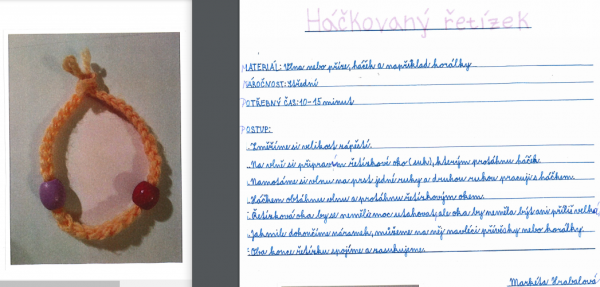 Háčkovaný řetízek
MATERIÁL: Vlna nebo příze, háček a například korálky
NÁROČNOST: Střední
POTŘEBNÝ ČAS: 10-15 minut
POSTUP:
. Změříme si velikost zápěstí.
. Na vlně si připravím řetízkové oko (suk), kterým protáhnu háček.
. Namotáme si vlnu na prst jedné ruky a druhou rukou pracuji s háčkem.
. Háčkem obtáhnu vlnu a protáhnu řetízkovým okem.
. Řetízková oka by se neměli moc utahovat, ale oka by neměla být ani příliš velká
. Jakmile dokončíme náramek, můžeme na něj navléci přívěsky nebo korálky.
. Oba konce řetízku spojíme a zasukujeme.
Markéta Hrabalová